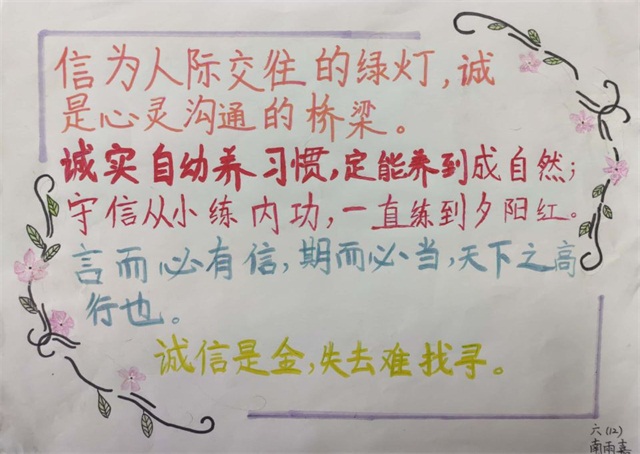 信为人际交往的绿灯,诚
是心灵沟通的桥梁。
诚实自幼养习惯,定能养到成自然;
守信从小练内功,一直练到夕阳红。
言而必有信,期而必当,天下之高
行也。
诚信是金,失去难找寻。
六(12)
南雨真